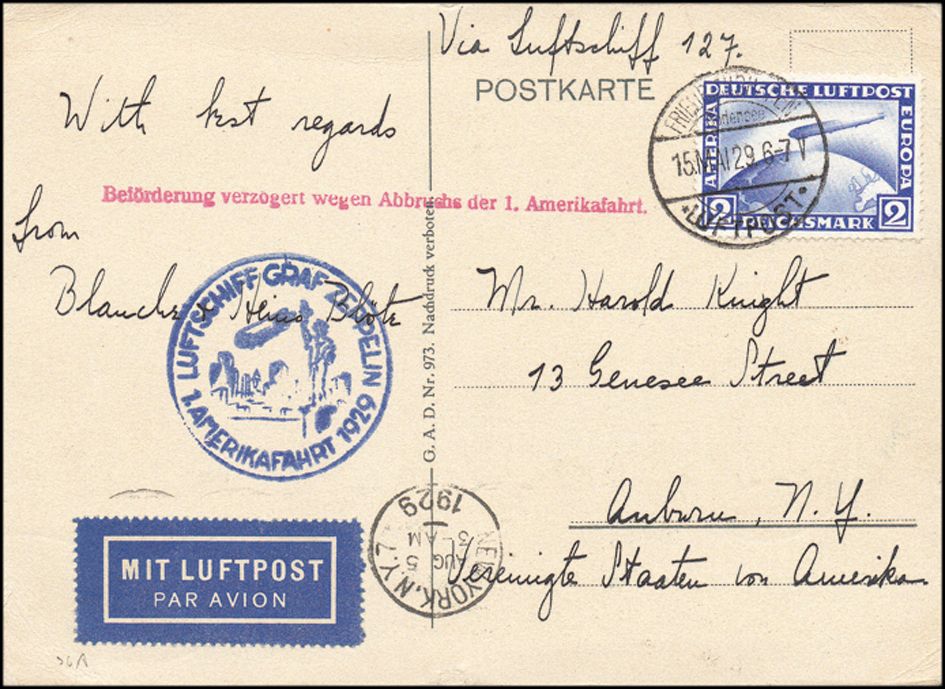 Via Luftschiff 127.
POSTKARTE
With best regards
from
Blanche & Heins Blöte
Beförderung verzögert wegen Abbruchs der 1. Amerikafahrt.
LUFTSCHIFF GRAF ZEPPELIN
1. AMERIKAFAHRT 1929
MIT LUFTPOST
PAR AVION
G. A. D. Nr. 973. Nachdruck verboten.
FRIEDRICHSHAFEN
Bodensee
15.MAI 29.6-7 V
*LUFTPOST*
DEUTSCHE LUFTPOST
AMERIKA
EUROPA
2 REICHSMARK 2
Mr. Harold Knight
13 Genesee Street
Auburn, N. Y.
Vereinigte Staaten von Amerika
NEW YORK, N.Y. 7
AUG 5
3 - AM
1929